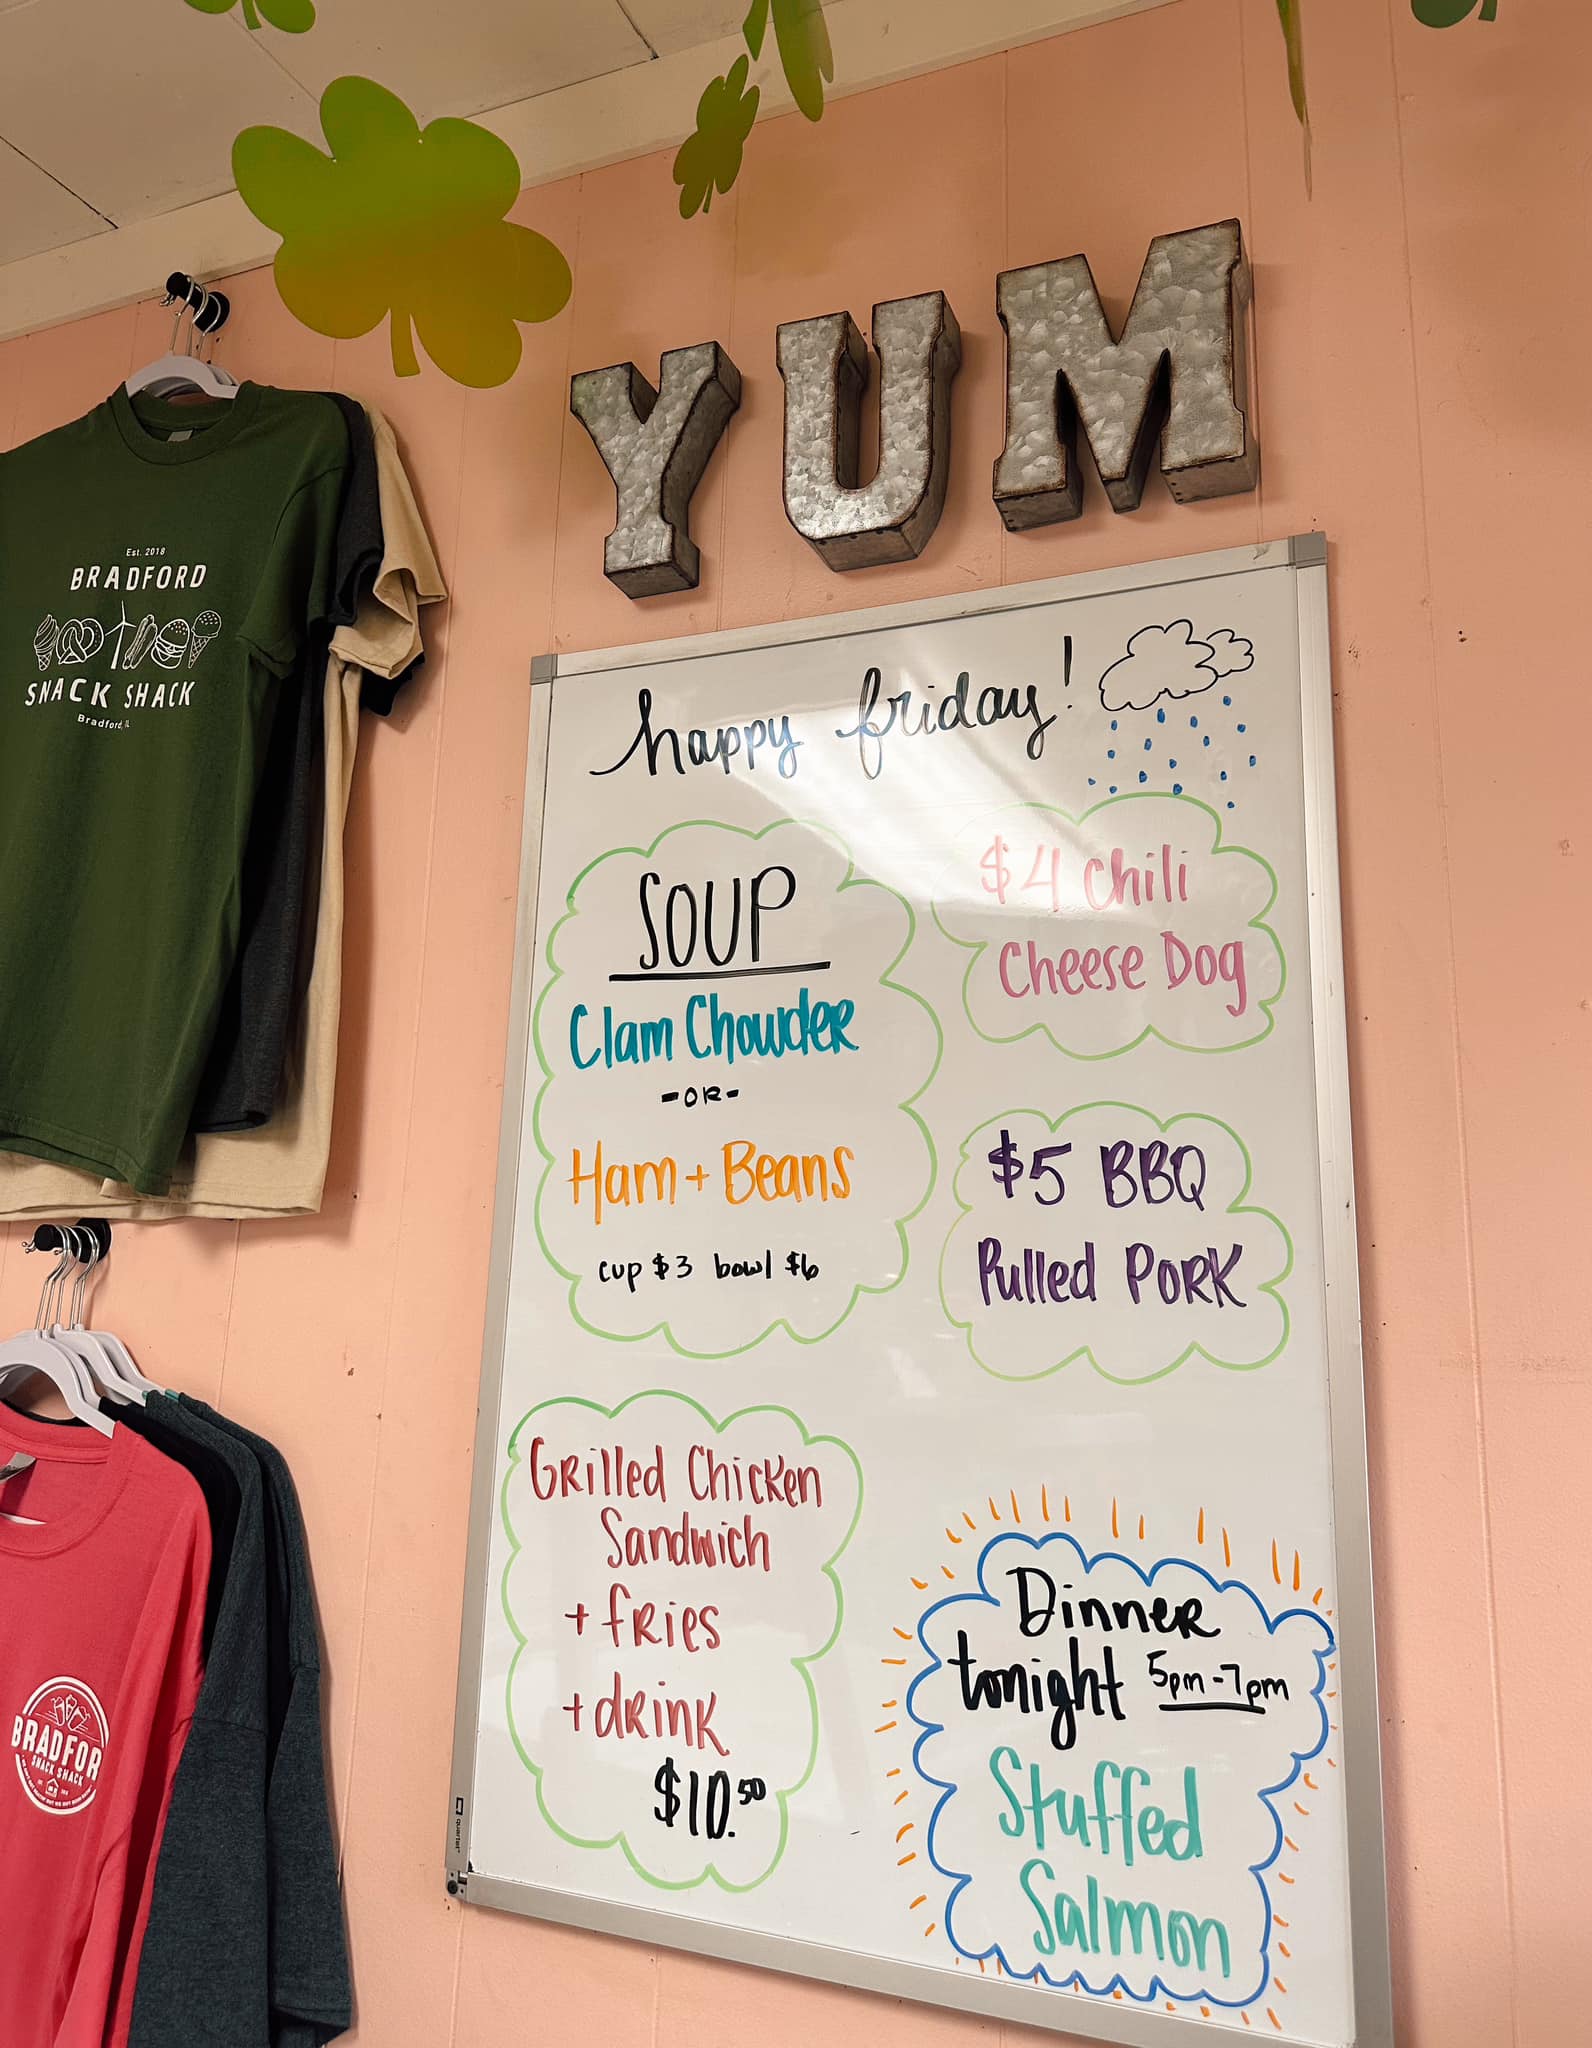 YUM
Est. 2018
BRADFORD
SNACK SHACK
Bradford, IL
happy friday!
SOUP
Clam Chowder
-OR-
Ham + Beans
cup $3 bowl $6
$4 Chili
Cheese Dog
$5 BBQ
Pulled Pork
Grilled Chicken
Sandwich
+ fries
+ drink
$10.50
Dinner
tonight 5pm-7pm
Stuffed
Salmon
BRADFOR
SNACK SHACK
quartet